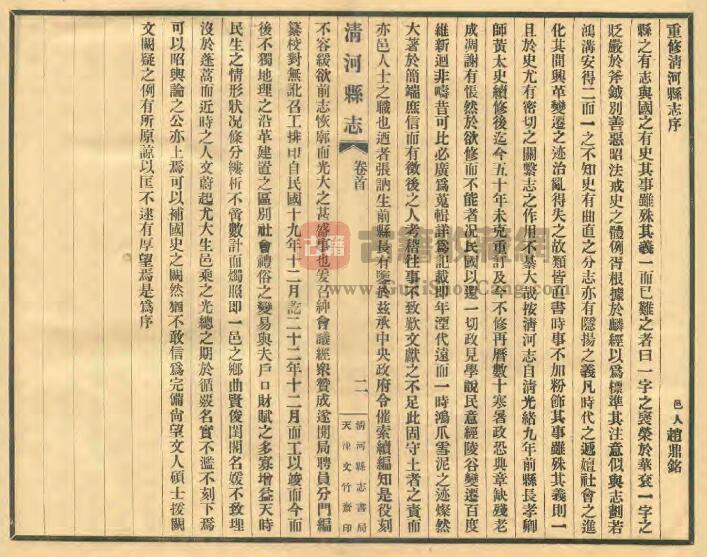 重修清河縣志序
邑人趙鼎銘
縣之有志與國之有史其事雖殊其義一而已難之者曰一字之褒榮於華袞一字之
貶嚴於斧鉞別善惡昭法戒史之體例胥根據於麟經以爲標準其注意似與志劃若
鴻溝安得二而一之不知史有曲直之分志亦有隱揚之義凡時代之遞嬗社會之進
化其間興革變遷之迹治亂得失之故類皆直書時事不加粉飾其事雖殊其義則一
且於史尤有密切之關繫志之作用不綦大哉按清河志自清光緒九年前縣長孝卿
師黃太史續修後迄今五十年未克重訂及今不修再曆數十寒暑政恐典章缺殘老
成凋謝有悵然於欲修而不能者况民國以還一切政見學說民意經陵谷變遷百度
維新迴非疇昔可比必廣爲蒐輯詳爲記載即年湮代遠而一時鴻爪雪泥之迹燦然
大著於簡端庶信而有徵後之人考稽往事不致歎文獻之不足此固守土者之責而
亦邑人士之職也迺者張訥生前縣長有鑒於茲承中央政府令催索續編知是役刻
清河縣志
卷首
二
清河縣志書局
天津文竹齋印
不容緩欲前志恢廓而光大之甚盛事也爰召紳會議經衆贊成遂開局聘員分門編
纂校對無訛召工排印自民國十九年十二月訖二十二年十二月而工以竣而今而
後不獨地理之沿革建置之區別社會禮俗之變易與夫戶口財賦之多寡增益天時
民生之情形狀况條分縷析不啻數計而燭照即一邑之鄉曲賢俊閨閫名媛不致埋
沒於蓬蒿而近時之人文蔚起尤大生邑乘之光總之期於循覈名實不濫不刻下焉
可以昭輿論之公亦上焉可以補國史之闕然猶不敢信爲完備尙望文人碩士援闕
文闕疑之例有所原諒以匡不逮有厚望焉是爲序
古籍
古籍收藏網
www.GujiShouCang.com